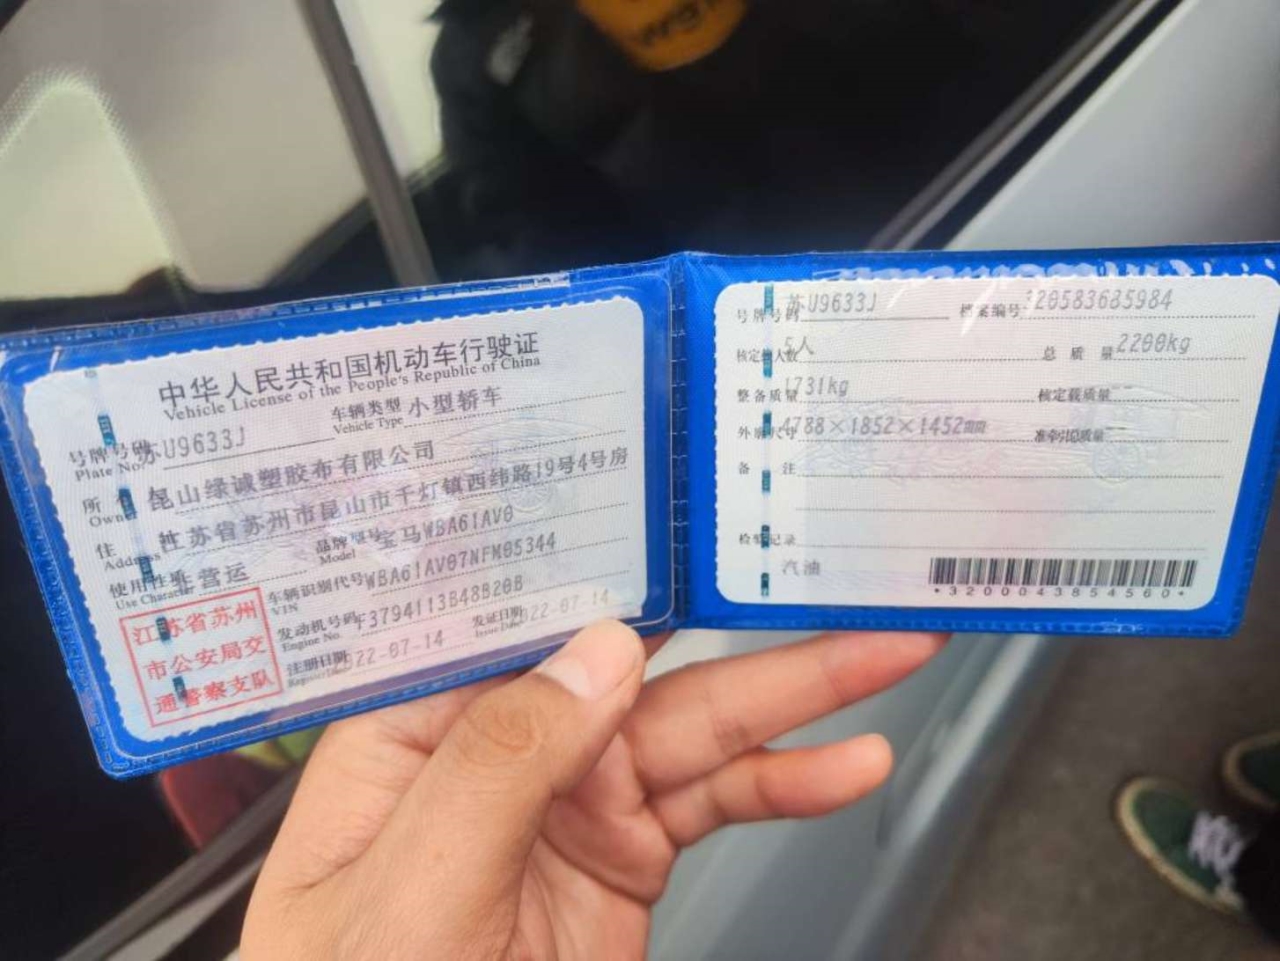 中华人民共和国机动车行驶证
Vehicle License of the People's Republic of China
号牌号码 苏U9633J 车辆类型 小型轿车
Plate No. Vehicle Type
所有人 昆山绿诚塑胶布有限公司
Owner
住址 江苏省苏州市昆山市千灯镇西纬路19号4号房
Address
使用性质 非营运 品牌型号 宝马WBA61AV0
Use Character Model
车辆识别代号 WBA61AV07NFM05344
VIN
发动机号码 F3794113B48B20B
Engine No.
注册日期 2022-07-14 发证日期 2022-07-14
Register Date Issue Date
江苏省苏州
市公安局交
通警察支队
号牌号码 苏U9633J 档案编号 320583685984
核定载人数 5人 总质量 2200kg
整备质量 1731kg 核定载质量
外廓尺寸 4788×1852×1452mm 准牵引总质量
备注
检验记录
汽油
*3200043854560*